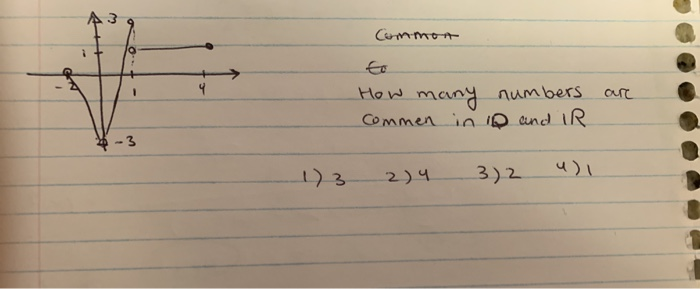 3
1
-2
1
4
-3
Common
to
How many numbers are
commen in ID and IR
1) 3 2) 4 3) 2 4) 1